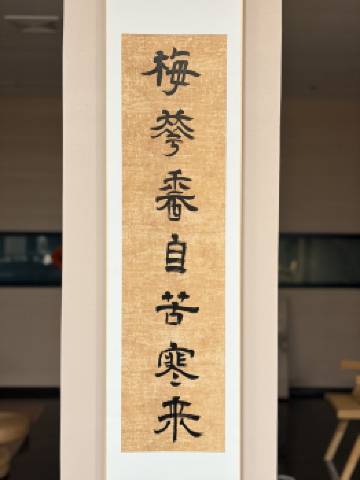 梅蕐香自苦寒来